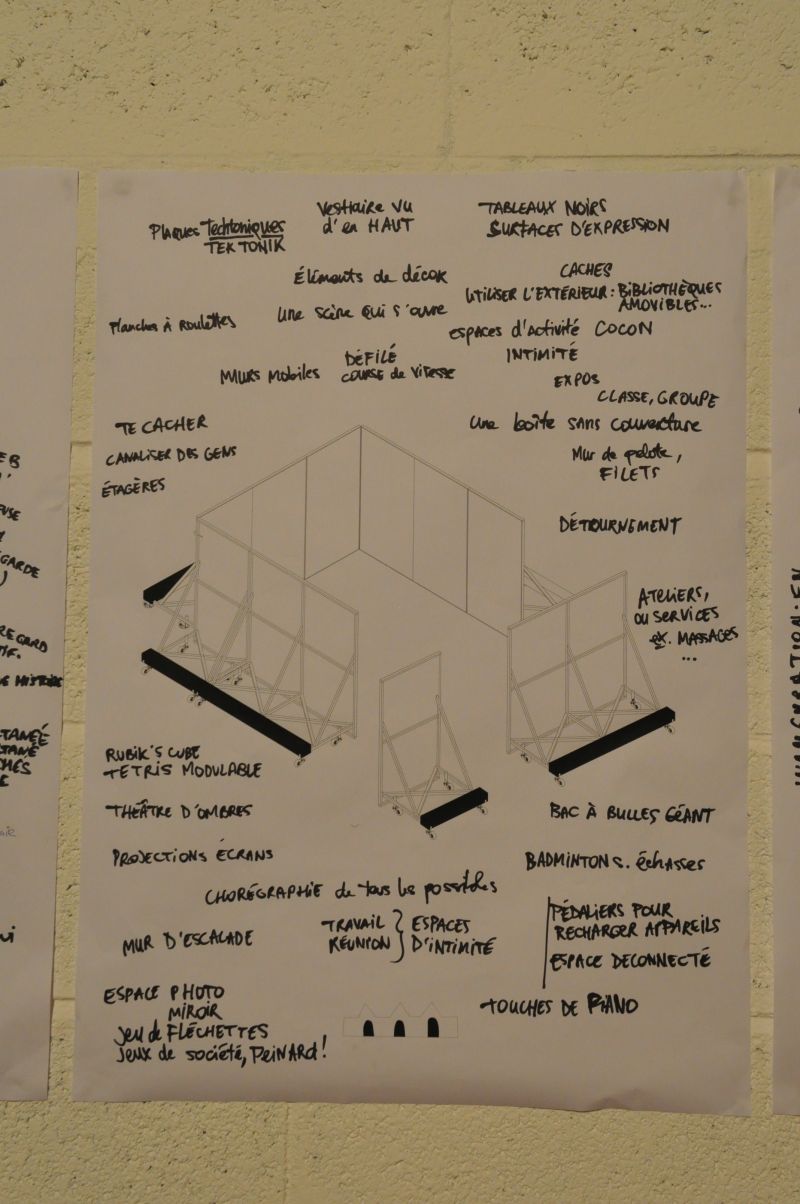 Vestiaire vu
d'en HAUT
TABLEAUX NOIRS
SURFACES D'EXPRESSION
Plaques Techtoniques
TEKTONIK
Éléments de décor
CACHES
UTILISER L'EXTÉRIEUR : BIBLIOTHÈQUES
AMOVIBLES...
Une scène qui s'ouvre
Planches à Roulettes
espaces d'activité COCON
INTIMITÉ
DÉFILÉ
COURSE de VITESSE
MURS MOBILES
EXPOS
CLASSE, GROUPE
TE CACHER
Une boîte sans couverture
CANALISER DES GENS
Mur de pelote,
FILETS
ÉTAGÈRES
DÉTOURNEMENT
ATELIERS,
OU SERVICES
ex. MASSAGES
...
RUBIK'S CUBE
TETRIS MODULABLE
THÉÂTRE D'OMBRES
BAC À BULLES GÉANT
PROJECTIONS ÉCRANS
BADMINTON S. échasses
CHORÉGRAPHIE de tous les possibles
MUR D'ESCALADE
TRAVAIL } ESPACES
RÉUNION } D'INTIMITÉ
PÉDALIERS POUR
RECHARGER APPAREILS
ESPACE DECONNECTÉ
ESPACE PHOTO
MIROIR
Jeu de FLÉCHETTES
Jeux de société, PEINARD !
TOUCHES DE PIANO
GARDE
REGARD